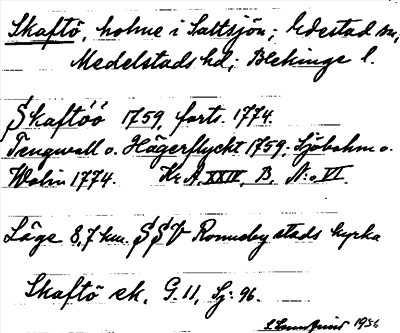 Skaftö, holme i Saltsjön; Edestad sn,
Medelstads hd; Blekinge l.
Skaftöö 1759, forts. 1774.
Tengwall o. Hägerflyckt 1759; Sjöbohm o.
Wolin 1774. Kr. A. XXIV, B, N:o VI.
Läge 8,7 km. SSV Ronneby stads kyrka
Skaftö ek. G. 11, Sj: 96.
1956